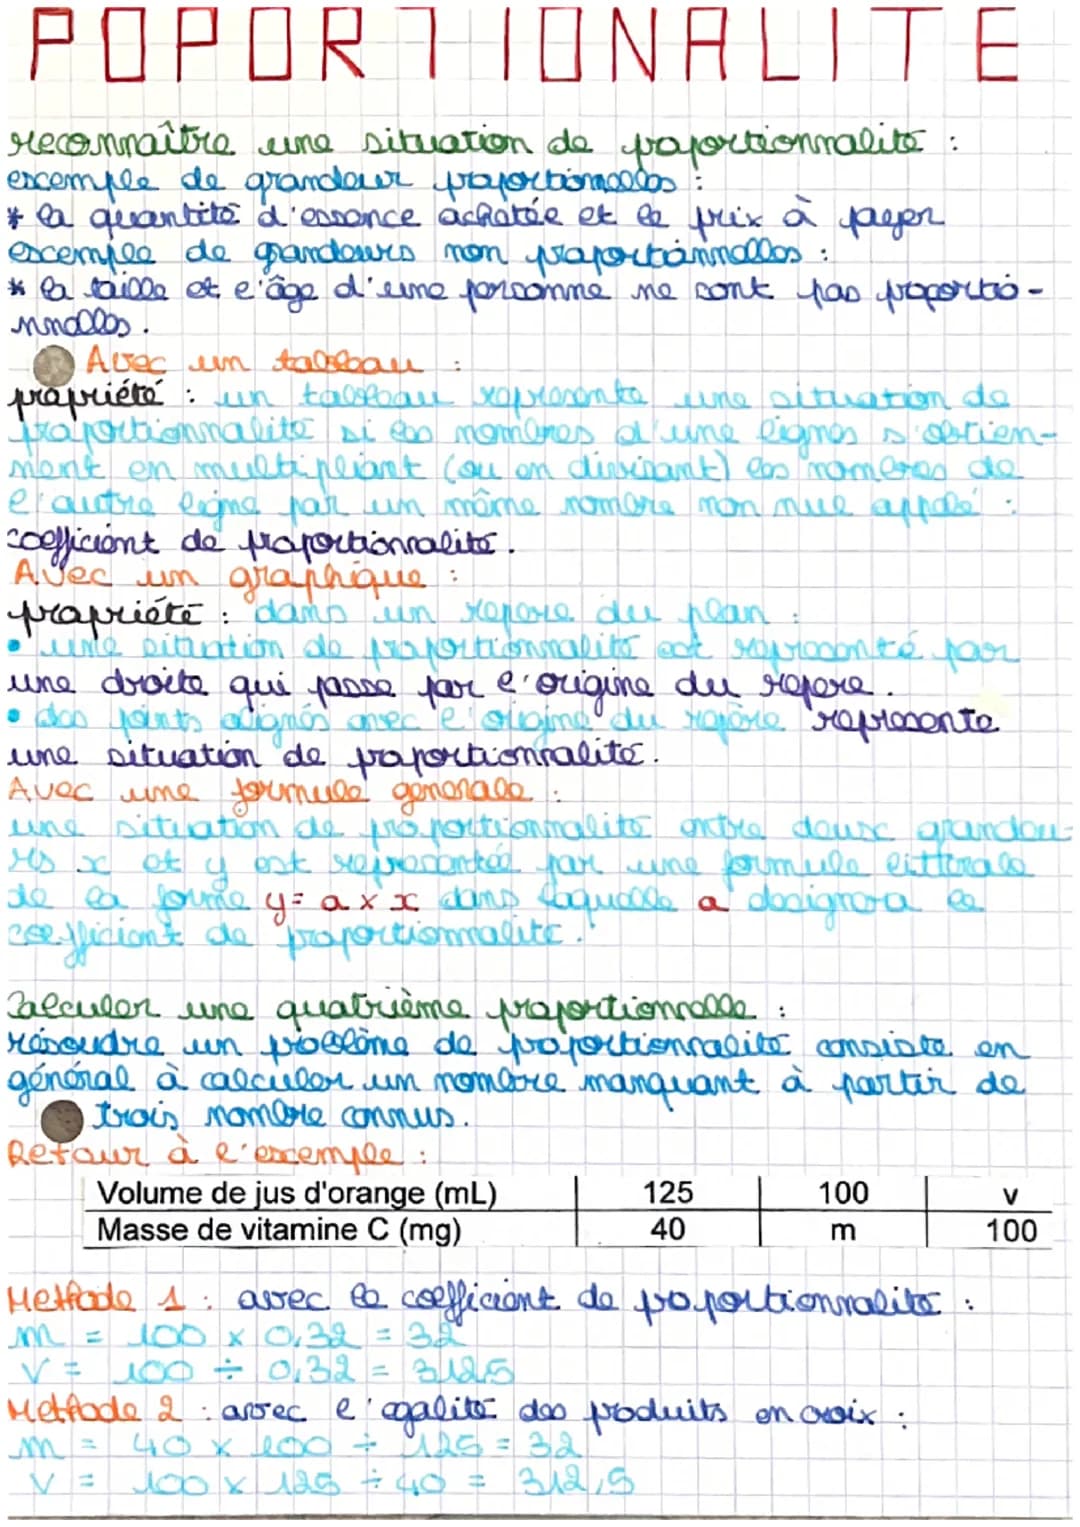 POPORTIONALITE
reconnaître une situation de proportionnalité :
excemple de grandeur proportionnelles :
* la quantité d'essence achetée et le prix à payer
excemple de grandeurs non proportionnelles :
* la taille et l'âge d'une personne ne sont pas proportio-
nnelles.
Avec un tableau :
propriété : un tableau represente une situation de
proportionnalité si les nombres d'une lignes s'obtien-
nent en multipliant (ou en divisant) les nombres de
l'autre ligne par un même nombre non nul appelé :
coefficient de proportionnalité.
Avec un graphique :
propriété : dans un repere du plan :
• une situation de proportionnalité est representé par
une droite qui passe par l'origine du repere.
• des points alignés avec l'origine du repère represente
une situation de proportionnalité.
Avec une formule generale :
une situation de proportionnalité entre deux grandeu-
rs x et y est representée par une formule litterale
de la forme y = a x x dans laquelle a designera le
coefficient de proportionnalité.
Calculer une quatrième proportionnelle :
résoudre un problème de proportionnalité consiste en
général à calculer un nombre manquant à partir de
trois nombre connus.
Retour à l'excemple :
Volume de jus d'orange (mL) 125 100 v
Masse de vitamine C (mg) 40 m 100
Methode 1 : avec le coefficient de proportionnalité :
m = 100 x 0,32 = 32
V = 100 ÷ 0,32 = 312,5
Methode 2 : avec l'egalité des produits en croix :
m = 40 x 100 ÷ 125 = 32
V = 100 x 125 ÷ 40 = 312,5